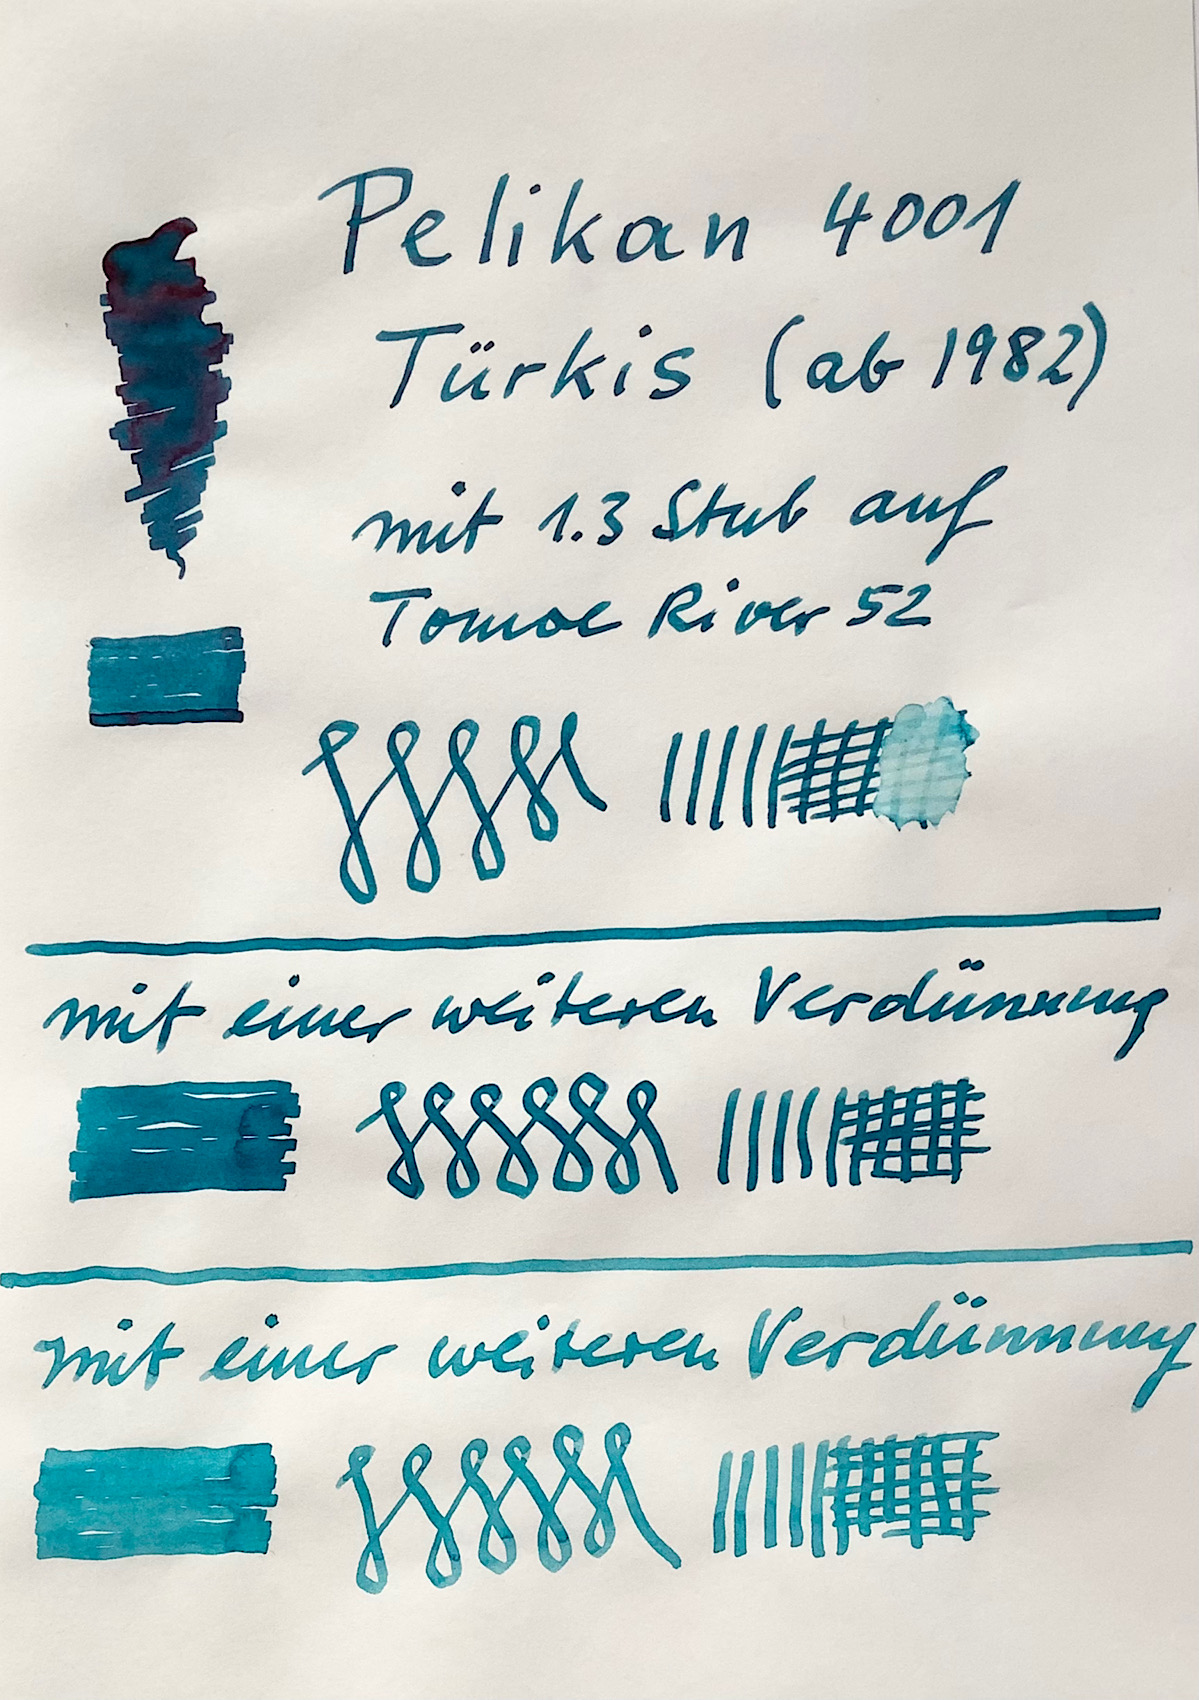 Pelikan 4001
Türkis (ab 1982)
mit 1.3 Stub auf
Tomoe River 52
mit einer weiteren Verdünnung
mit einer weiteren Verdünnung